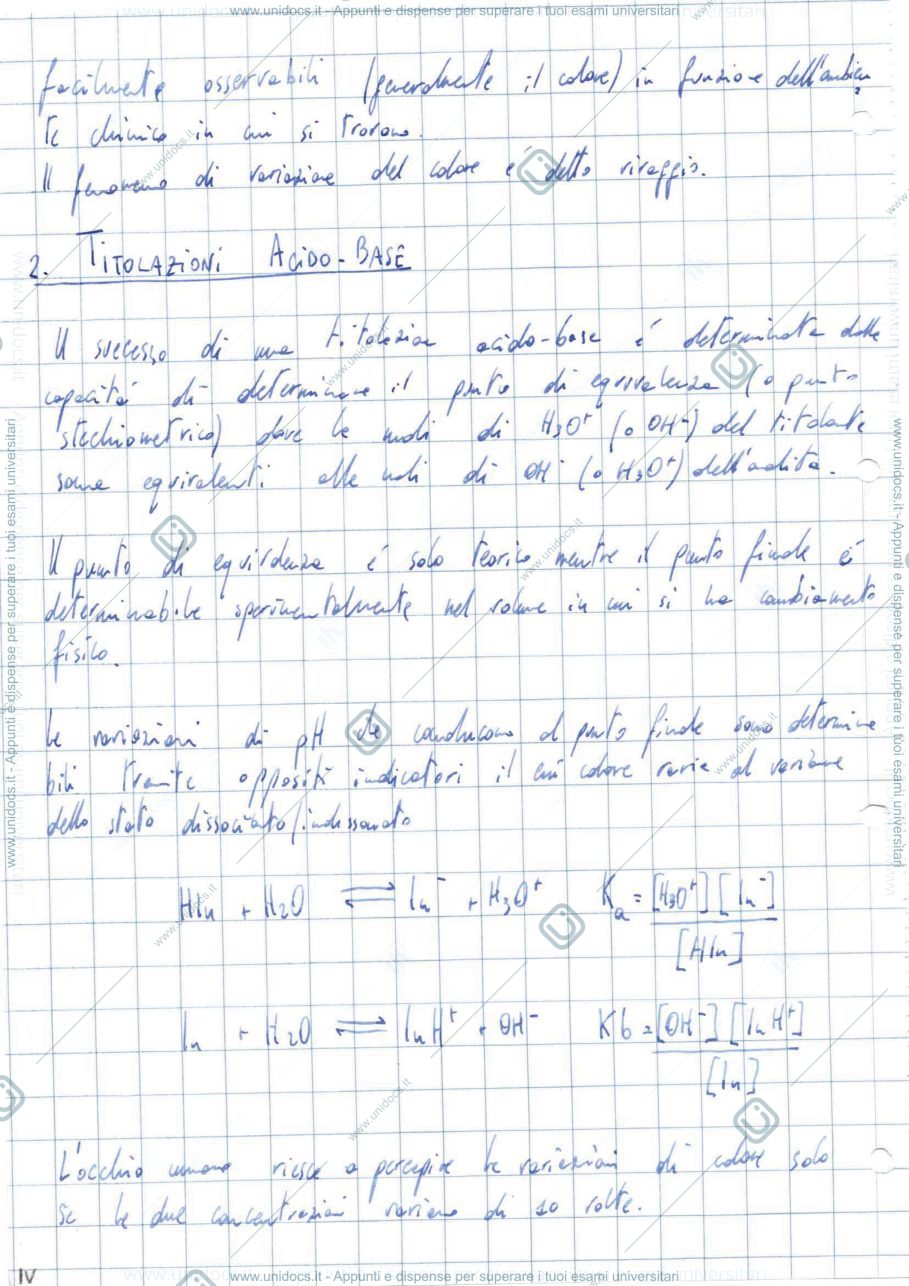 www.unidocs.it - Appunti e dispense per superare i tuoi esami universitari
facilmente osservabili (generalmente il colore) in funzione dell'ambien
te chimico in cui si trovano.
Il fenomeno di variazione del colore é detto viraggio.
2. TITOLAZIONI ACIDO-BASE
Il successo di una titolazione acido-base é determinata dalla
capacità di determinare il punto di equivalenza (o punto
stechiometrico) dove le moli di H3O+ (o OH-) del titolante
sono equivalenti alle moli di OH- (o H3O+) dell'analita.
Il punto di equivalenza é solo teorico mentre il punto finale é
determinabile sperimentalmente nel volume in cui si ha cambiamento
fisico.
Le variazioni di pH che conducono al punto finale sono determina
bili tramite appositi indicatori il cui colore varia al variare
dello stato dissociato/indissociato
HIn + H2O ⇌ In- + H3O+ Ka = [H3O+] [In-]
[HIn]
In + H2O ⇌ InH+ + OH- Kb = [OH-] [InH+]
[In]
L'occhio umano riesce a percepire le variazioni di colore solo
se le due concentrazioni variano di 10 volte.
IV
www.unidocs.it - Appunti e dispense per superare i tuoi esami universitari